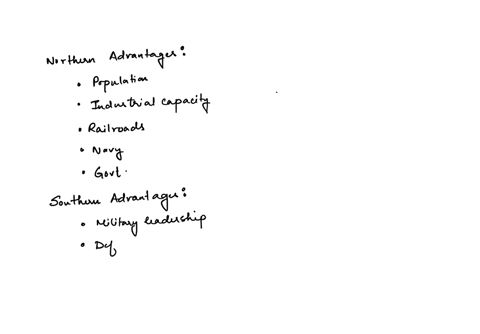 Northern Advantages:
• Population
• Industrial capacity
• Railroads
• Navy
• Govt.
Southern Advantages:
• Military leadership
• Def